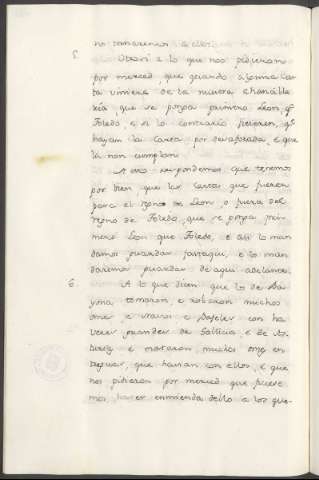 no
5. Otrosi a lo que nos pidieron
por merced, que quando alguna Car
ta viniere de la nuestra chancille
ria que se ponga primero Leon, q.e
Toledo, e si lo contrario ficieren, q.e
hayan la Carta por desaforada, e que
la non cumplan.
A esto respondemos que tenemos
por bien, que las Cartas que fueren
para el regno de Leon, o fuera del
regno de Toledo, que se ponga pri-
mero Leon que Toledo, e asi lo man
damos guardar fartaqui, e lo man
daremos guardar de aqui adelante.
6. A lo que dicen que los de Ba
yona tomaron, e robaron muchos
e Naves e Bajeles con ha
veres grandes de Gallicia e de As-
turias e mataron muchos omes en
treguar, que havian con ellos, e que
nos pidieron por merced que ficiese
mos haver enmienda dello a los que-